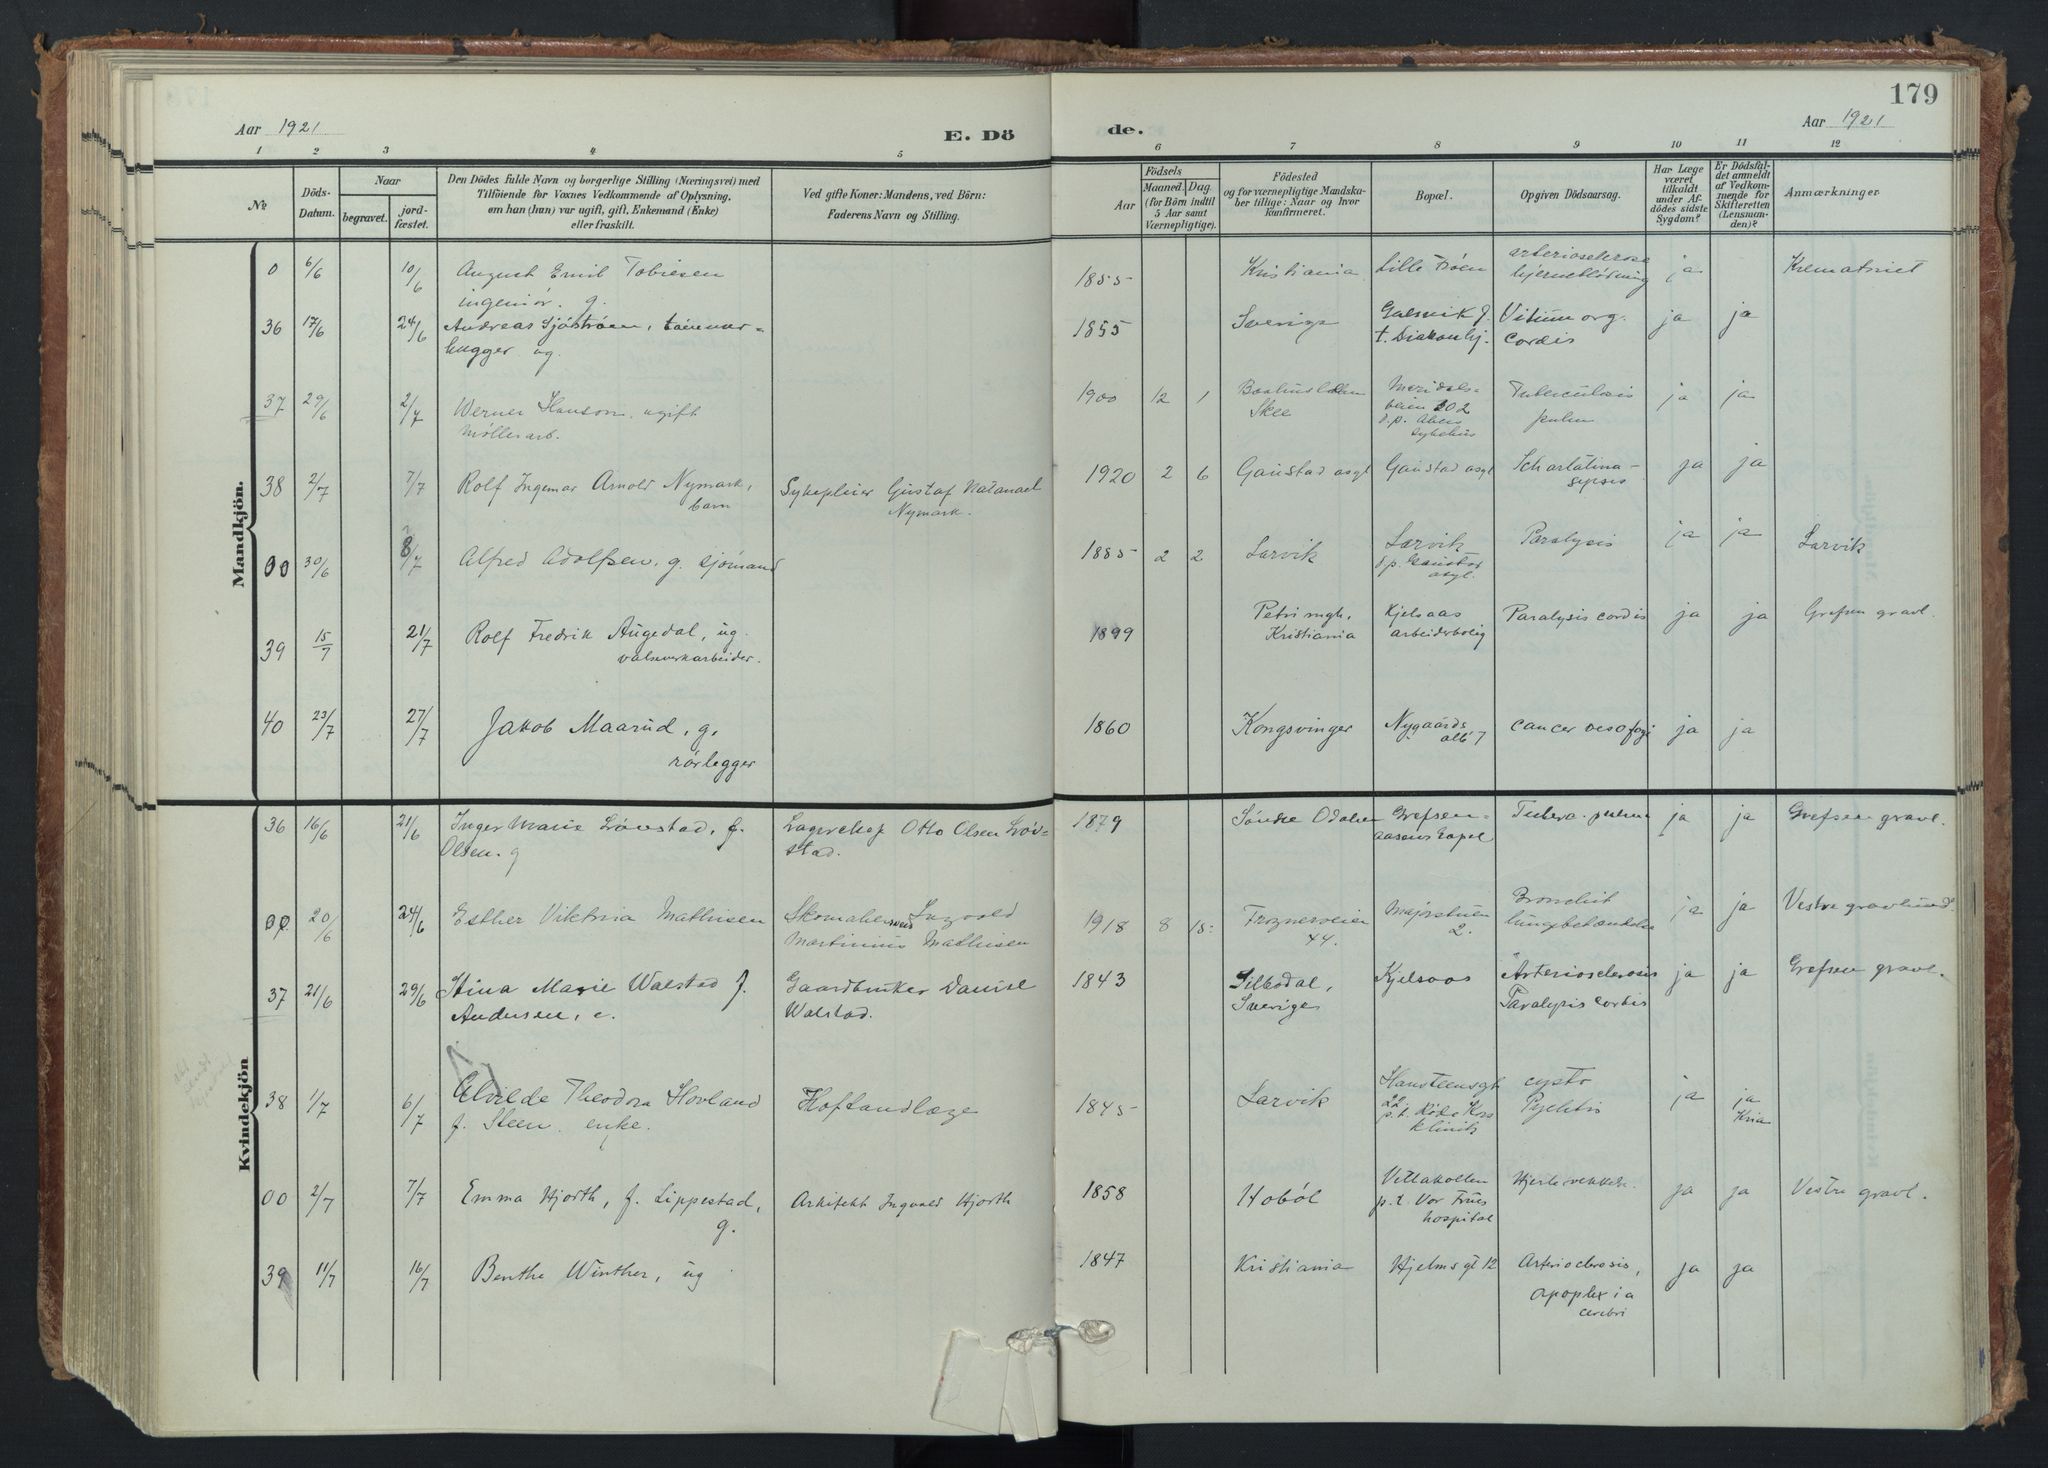 179
Aar 1921
E. Dö
de.
Aar 1921
1 2 3 4 5 6 7 8 9 10 11 12
№
Döds-
Datum.
Naar
begravet.
jord-
fæstet.
Den Dödes fulde Navn og borgerlige Stilling (Næringsvei) med
Tilföiende for Voxnes Vedkommende af Oplysning,
om han (hun) var ugift, gift, Enkemand (Enke)
eller fraskilt.
Ved gifte Koner: Mandens, ved Börn:
Faderens Navn og Stilling.
Födsels
Aar
Maaned. Dag.
(for Börn indtil
5 Aar samt
Værnepligtige).
Födested
og for værnepligtige Mandska-
ber tillige: Naar og hvor
konfirmeret.
Bopæl.
Opgiven Dödsaarsag.
Har Læge
været
tilkaldt
under Af-
dödes sidste
Sygdom?
Er Dödsfal-
det anmeldt
af Vedkom-
mende for
Skifteretten
(Lensman-
den)?
Anmærkninger
Mandkjön.
0 6/6 10/6 August Emil Tobiesen
ingeniör. g.
1855 Kristiania Lille Frøen
hjerneblödning ja
36 17/6 24/6 Andreas Sjöström, tömmer-
hugger ug.
1855 Sverige
t. Diakonhj.
Vitium org.
cordis ja ja
37 29/6 2/7 Werner Hanson, ugift
Møllerarb.
1900 12 1
Skee
Tuberculosis
pulm ja ja
38 2/7 7/7 Rolf Ingemar Arnold Nymark,
barn
Sykepleier Gustaf Natanael
Nymark.
1920 2 6 Gaustad asyl Gaustad asyl Scharlatina-
sepsis ja ja
00 30/6 8/7 Alfred Adolfsen, g. sjömand
1885 2 2 Larvik Larvik
d.p. Gaustad
asyl.
Paralysis ja ja Larvik
39 15/7 21/7 Rolf Fredrik Augedal, ug.
valseverkarbeider.
1899 Petri mgh.
Kristiania
Kjelsaas
arbeiderbolig
Paralysis cordis ja ja Grefsen gravl.
40 23/7 27/7 Jakob Maarud, g.
rörlegger
1860 Kongsvinger Nygaards
allé 7
cancer oesofagi ja ja
Kvindekjön
36 16/6 21/6 Inger Marie Lövstad, f.
Olsen. g
Otto Olsen Löv-
stad.
1879 Söndre Odalen Grefsen-
ja ja Grefsen gravl.
00 20/6 24/6 Esther Viktoria Mathisen
Skomakersvend Ingvald
Martinius Mathisen
1918 8 15 Frognerveien
44.
Majorstuen
2.
Bronchit
lungebetændelse ja ja Vestre gravlund.
37 21/6 29/6 Stina Marie Walstad f.
Andersen, e.
Gaardbruker Daniel
Walstad.
1843 Silbodal,
Sverige
Kjelsaas Arteriosclerosis
Paralysis cordis ja ja Grefsen gravl.
38 1/7 6/7 Elvilde Theodora Hovland
f. Steen. enke.
Hoftandlæge
1845 Larvik Hansteensgt
22.
p.t. Röde Krs
klinik
cysto
Pyelitis ja ja
Kria
00 2/7 7/7 Emma Hjorth, f. Lippestad,
g.
Arkitekt Ingvald Hjorth
1858 Hobøl
p.t. Vor Frues
hospital
ja ja Vestre gravl.
39 11/7 16/7 Benthe Winther, ug
1847 Kristiania Hjelmsgt 12 Arterioclerosis,
apoplexia
cerebri ja ja